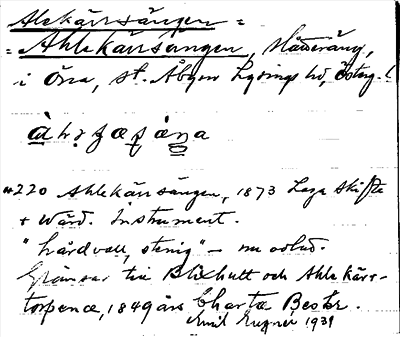 Alekärrsängen =
= Ahlekärrsängen, slåtteräng,
i Öna, St. Åbyn Lysings hd, Östeg. l
220 Ahlekärrsängen, 1873 Laga Skifte
+ Wärd. Instrument.
"hårdvall, stenig" - nu odlad.
Gränsar till Blixhult och Ahlekärr-
torpena, 1849 års Charta Beskr.
Emil 1939